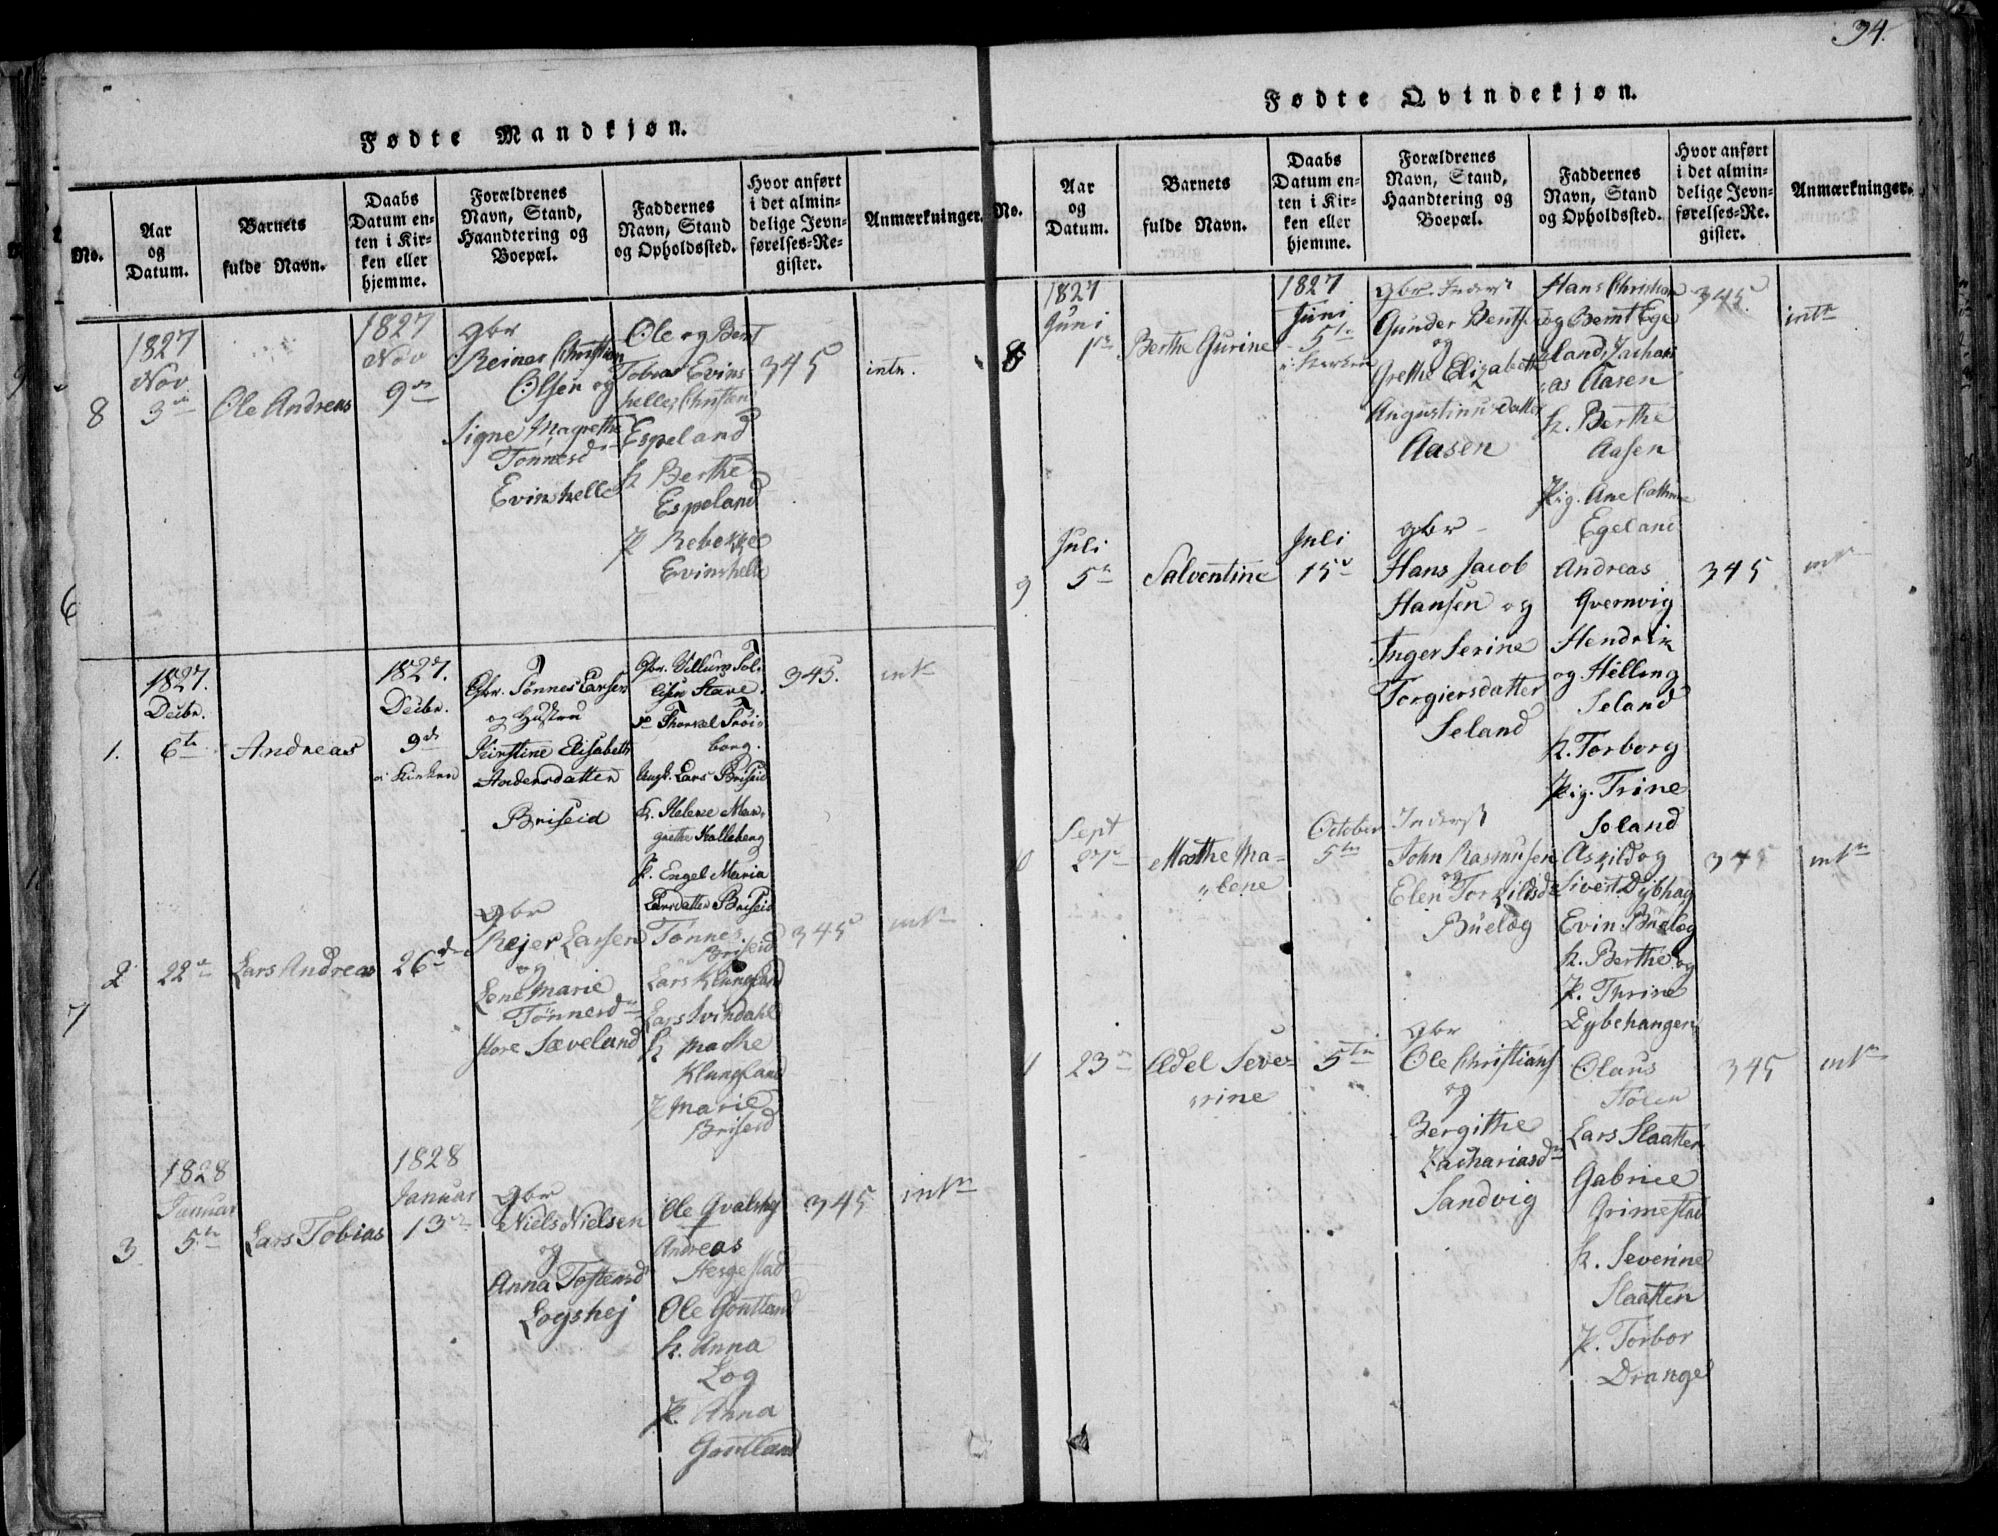 34.
Fødte Mandkjøn.
No.
Aar
og
Datum.
Barnets
fulde Navn.
Daabs
Datum en-
ten i Kir-
ken eller
hjemme.
Forældrenes
Navn, Stand,
Haandtering og
Boepæl.
Faddernes
Navn, Stand
og Opholdssted.
Hvor anført
i det almin-
delige Jevn-
førelses-Re-
gister.
Anmærkninger.
8
1827
Nov
3
Ole Andreas
1827
Nov
9
gbr
Reiner Christian
Olsen og
Signe Magrethe
Tönnesd
Evinshelle
Ole og Bent
Tobias Evins
helle, Christen
Espeland
K Berthe
Espeland
P Rebekke
Evinshelle
345
intn.
6
1.
1827.
Decbr.
6te
Andreas
1827.
Decbr.
9de
i Kirken
Gbr. Tönnes Larsen
og Hustru
Kirstine Elisabeth
Andersdatter
Briseid
Gbr. Villum Tol-
Stave.
Thorkel Tröi-
borg.
Ungk. Lars Briseid
K. Helene Mar-
grethe Kalleberg
P. Engel Maria
Larsdatter Briseid
345.
int
2
22
Lars Andreas
26de
gbr
Rejer Larsen
og
Lene Marie
Tönnesd
Store Sæveland
Tönnes
Briseid
Lars Klungland
Lars Svindahl
K Marthe
Klungland
P Marie
Briseid
345
int
7
3
1828
Januar
5te
Lars Tobias
1828
Januar
13
gbr
Niels Nielsen
og
Anna Tostensd
Logshej
Ole Qvalshej
Andreas
Hesgestad
Ole Goutland
K. Anna
Log
P. Anna
Goutland
345
intn
Fødte Qvindekjøn.
No.
Aar
og
Datum.
Barnets
fulde Navn.
Daabs
Datum en-
ten i Kir-
ken eller
hjemme.
Forældrenes
Navn, Stand,
Haandtering og
Boepæl.
Faddernes
Navn, Stand
og Opholdssted.
Hvor anført
i det almin-
delige Jevn-
førelses-Re-
gister.
Anmærkninger.
8
1827
Juni
1
Berthe Gurine
1827
Juni
5te
i Kirken
gbr. Inderst
Gunder Bentsen
og
Grethe Elizabeth
Augustinusdatter
Aasen
Hans Christian
og Bernt Ege
land, Zachari
as Aasen
K. Berthe
Aasen
Pig. Ane Cathrine
Egeland
345
intn
9
Juli
5
Salventine
Juli
15
gbr
Hans Jacob
Hansen og
Inger Serine
Torgiersdatter
Seland
Andreas
Qvernvig
Hendrik
og Helling
Seland
K. Torborg
Pig. Trine
Seland
345
int
10
Sept
27
Marthe Ma-
lene
October
5te
Inderst
John Rasmusen
og
Elen Torkildsd
Büelog
Askild og
Sivert Dybhag
Evin Büelog
K. Berthe og
P. Thrine
Dybehangen
345
intn
23
Adel Seve-
rine
5te
gbr
Ole Christians
og
Bergithe
Zachariasd
Sandvig
Olaus
Lars Slaatten
Gabriel
Grimestad
K. Severine
Slaatten
P. Torbor
Drange
345
intn